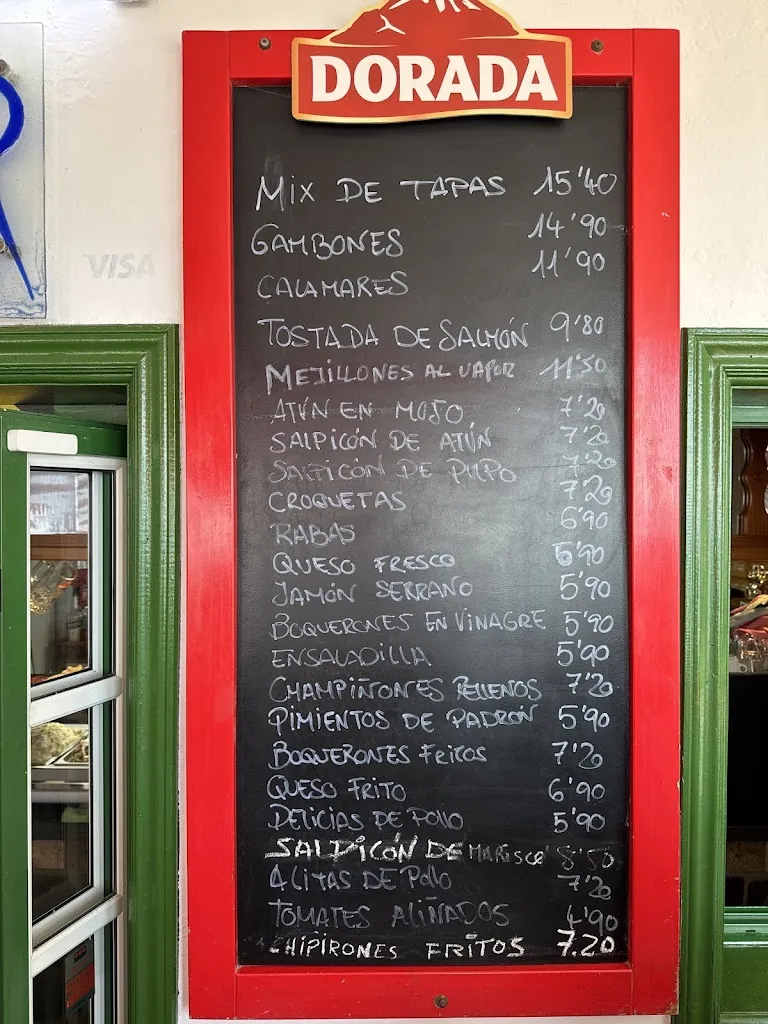 DORADA
VISA
MIX DE TAPAS 15'40
GAMBONES 14'90
CALAMARES 11'90
TOSTADA DE SALMÓN 9'80
MEJILLONES AL VAPOR 11'50
ATÚN EN MOJO 7'20
SALPICÓN DE ATÚN 7'20
SALPICÓN DE PULPO 7'20
CROQUETAS 7'20
RABAS 6'90
QUESO FRESCO 6'90
JAMÓN SERRANO 5'90
BOQUERONES EN VINAGRE 5'90
ENSALADILLA 5'90
CHAMPIÑONES RELLENOS 7'20
PIMIENTOS DE PADRÓN 5'90
BOQUERONES FRITOS 7'20
QUESO FRITO 6'90
DELICIAS DE POLLO 5'90
SALPICÓN DE MARISCO 8'50
ALITAS DE POLLO 7'20
TOMATES ALIÑADOS 4'90
CHIPIRONES FRITOS 7.20